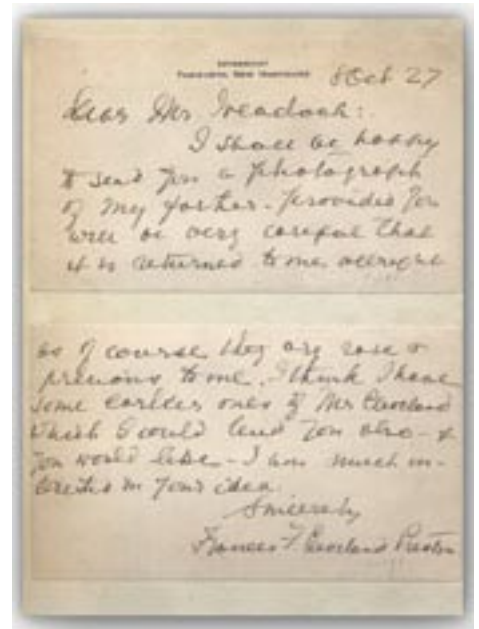 Tamworth, New Hampshire
8 Oct 27
Dear Mr
I shall be happy
to send you a photograph
of my father - provided you
will be very careful that
it is returned to me allright
as of course they are rare &
precious to me. I think I have
some earlier ones of Mr Cleveland
which I could lend you also - if
you would like - I am much in-
terested in your idea.
Sincerely
Frances F Cleveland Preston